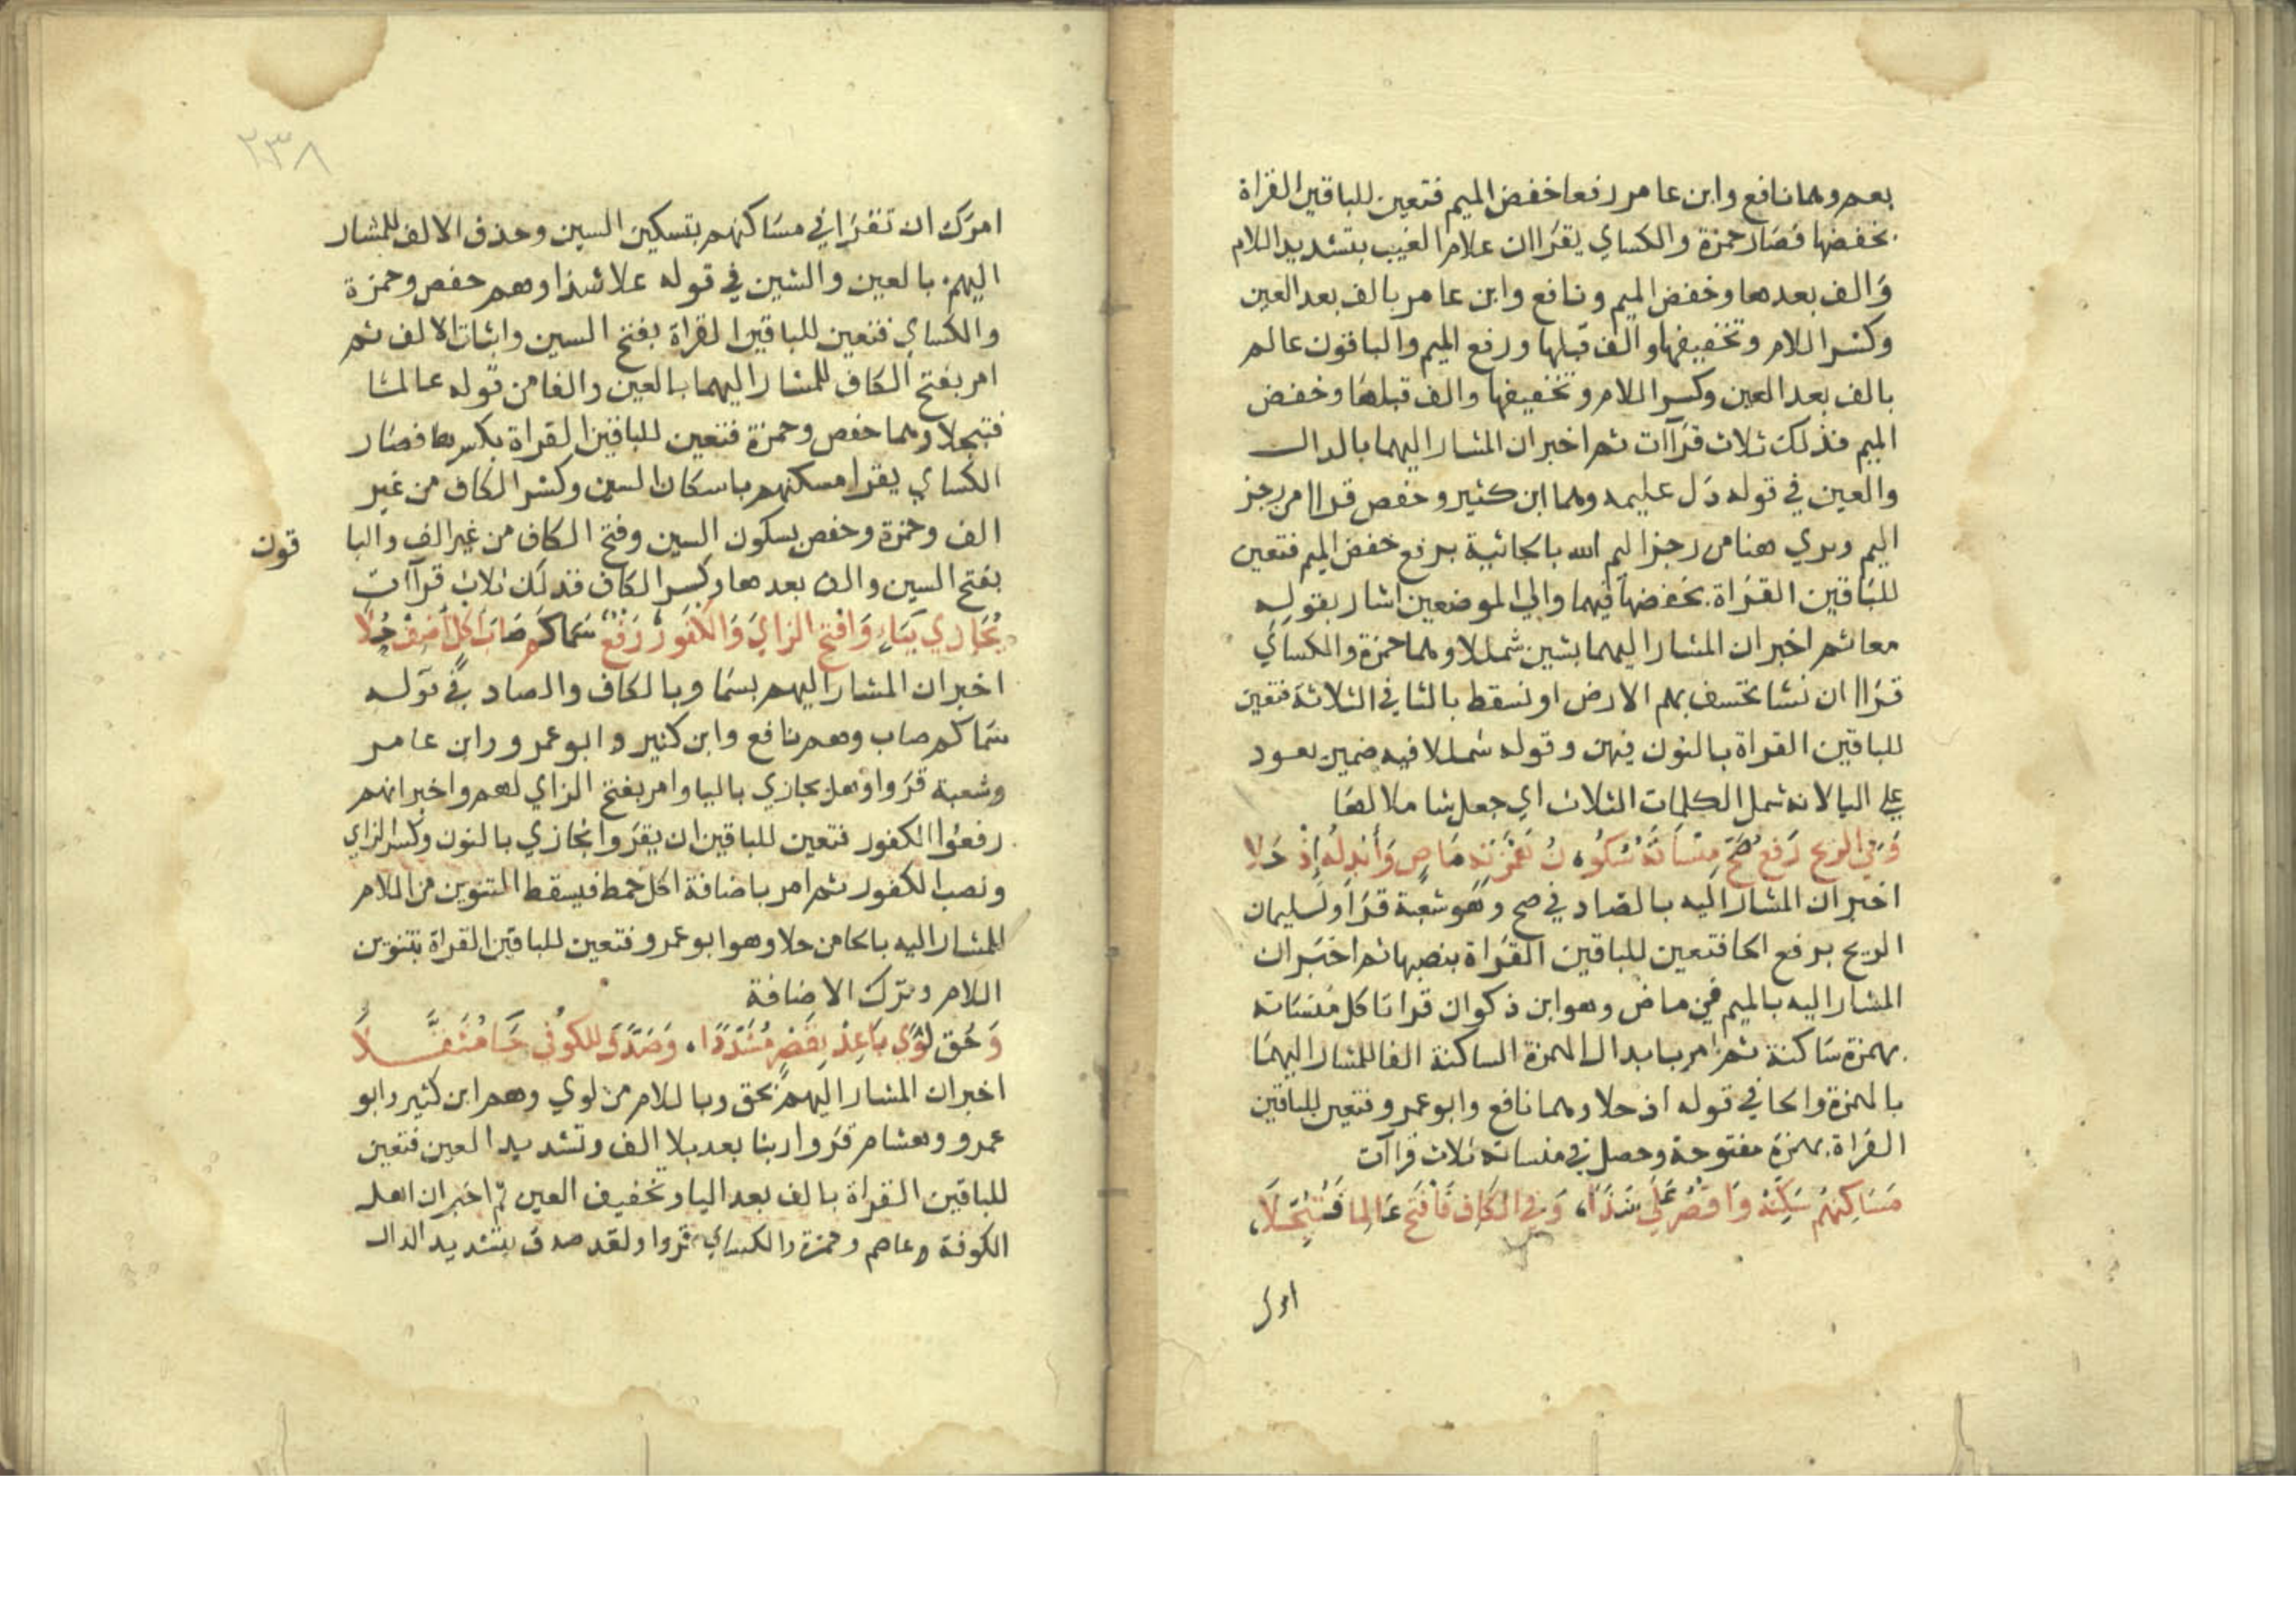 بعم وهما نافع وابن عامر رفعا خفض الميم فتعين للباقين القراة
بخفضها فصار حمزة والكساي يقراان علام الغيب بتشديد اللام
والف بعدها وخفض الميم ونافع وابن عامر بالف بعد العين
وكسر اللام وتخفيفها والف قبلها ورفع الميم والباقون عالم
بالف بعد العين وكسر اللام وتخفيفها والف قبلها وخفض
الميم فذلك ثلاث قراآت ثم اخبر ان المشار اليهما بالدال
والعين في قوله دل عليمه وهما ابن كثير وحفص قراا من رجز
اليم ويري هنا من رجز اليم الله بالجاثية برفع خفض الميم فتعين
للباقين القراة بخفضها فيهما والي الموضعين اشار بقوله
معا ثم اخبر ان المشار اليهما بشين شمللا وهما حمزة والكساي
قراا ان نشا نخسف بهم الارض او نسقط باليا في الثلاثة فتعين
للباقين القراة بالنون فيهن وقوله شمللا فيه ضمير يعود
علي اليا لانه شمل الكلمات الثلاث اي جعل شاملا لها
وَفي الريح رَفع صَحَّ مِنسَاتَهُ سُكُو نُ هَمزَتِهِ مَاضٍ وَأَبدِلهُ إِذْ حَلا
اخبر ان المشار اليه بالصاد في صح وهو شعبة قرا ولسليمان
الريح برفع الحا فتعين للباقين القراة بنصبها ثم اخبر ان
المشار اليه بالميم في ماض وهو ابن ذكوان قرا تاكل منساته
بهمزة ساكنة ثم امر بابدال الهمزة الساكنة الفا للمشار اليهما
بالهمزة والحا في قوله اذ حلا وهما نافع وابو عمرو فتعين للباقين
القراة بهمزة مفتوحة وحصل في منساته ثلاث قراآت
مَسَاكِنهم سَكِّنْهُ وَاقصُر عَلَي شَذًا، وَفي الكَافِ فَافتَح عَالِما فَتُبَجَّلا،
امرك
٢٣٨
امرك ان تقرا في مساكنهم بتسكين السين وحذف الالف للمشار
اليهم بالعين والشين في قوله علا شذا وهم حفص وحمزة
والكساي فتعين للباقين القراة بفتح السين واثبات الالف ثم
امر بفتح الكاف للمشار اليهما بالعين والفا من قوله عالما
فتبجلا وهما حفص وحمزة فتعين للباقين القراة بكسرها فصار
الكساي يقرا مسكنهم باسكان السين وكسر الكاف من غير
الف وحمزة وحفص بسكون السين وفتح الكاف من غير الف والبا قون
بفتح السين والف بعدها وكسر الكاف فذلك ثلاث قراآت
يُجَازي بِيَاءٍ وَافتح الزايَ وَالكفُورُ رَفعٌ سَمَا كم صَابَ اكلٍ أَضِف حُلا
اخبر ان المشار اليهم بسما وبالكاف والصاد في قوله
سما كم صاب وهم نافع وابن كثير وابو عمرو وابن عامر
وشعبة قروا وهل يجازي باليا وامر بفتح الزاي لهم واخبر انهم
رفعوا الكفور فتعين للباقين ان يقروا نجازي بالنون وكسر الزاي
ونصب الكفور ثم امر باضافة اكل خمط فيسقط التنوين من اللام
للمشار اليه بالحا من حلا وهو ابو عمرو فتعين للباقين القراة بتنوين
اللام وترك الاضافة
وَحَق لوَي بَاعِدْ بِقَصْرٍ مُشَدَّدًا، وَصَدَّقَ للكوُفي جَا مُثَقَّلا
اخبر ان المشار اليهم بحق وباللام من لوي وهم ابن كثير وابو
عمرو وهشام قروا ربنا بعد بلا الف وتشديد العين فتعين
للباقين القراة بالف بعد البا وتخفيف العين ثم اخبر ان اهل
الكوفة وعاصم وحمزة والكساي قروا ولقد صدق بتشديد الدال